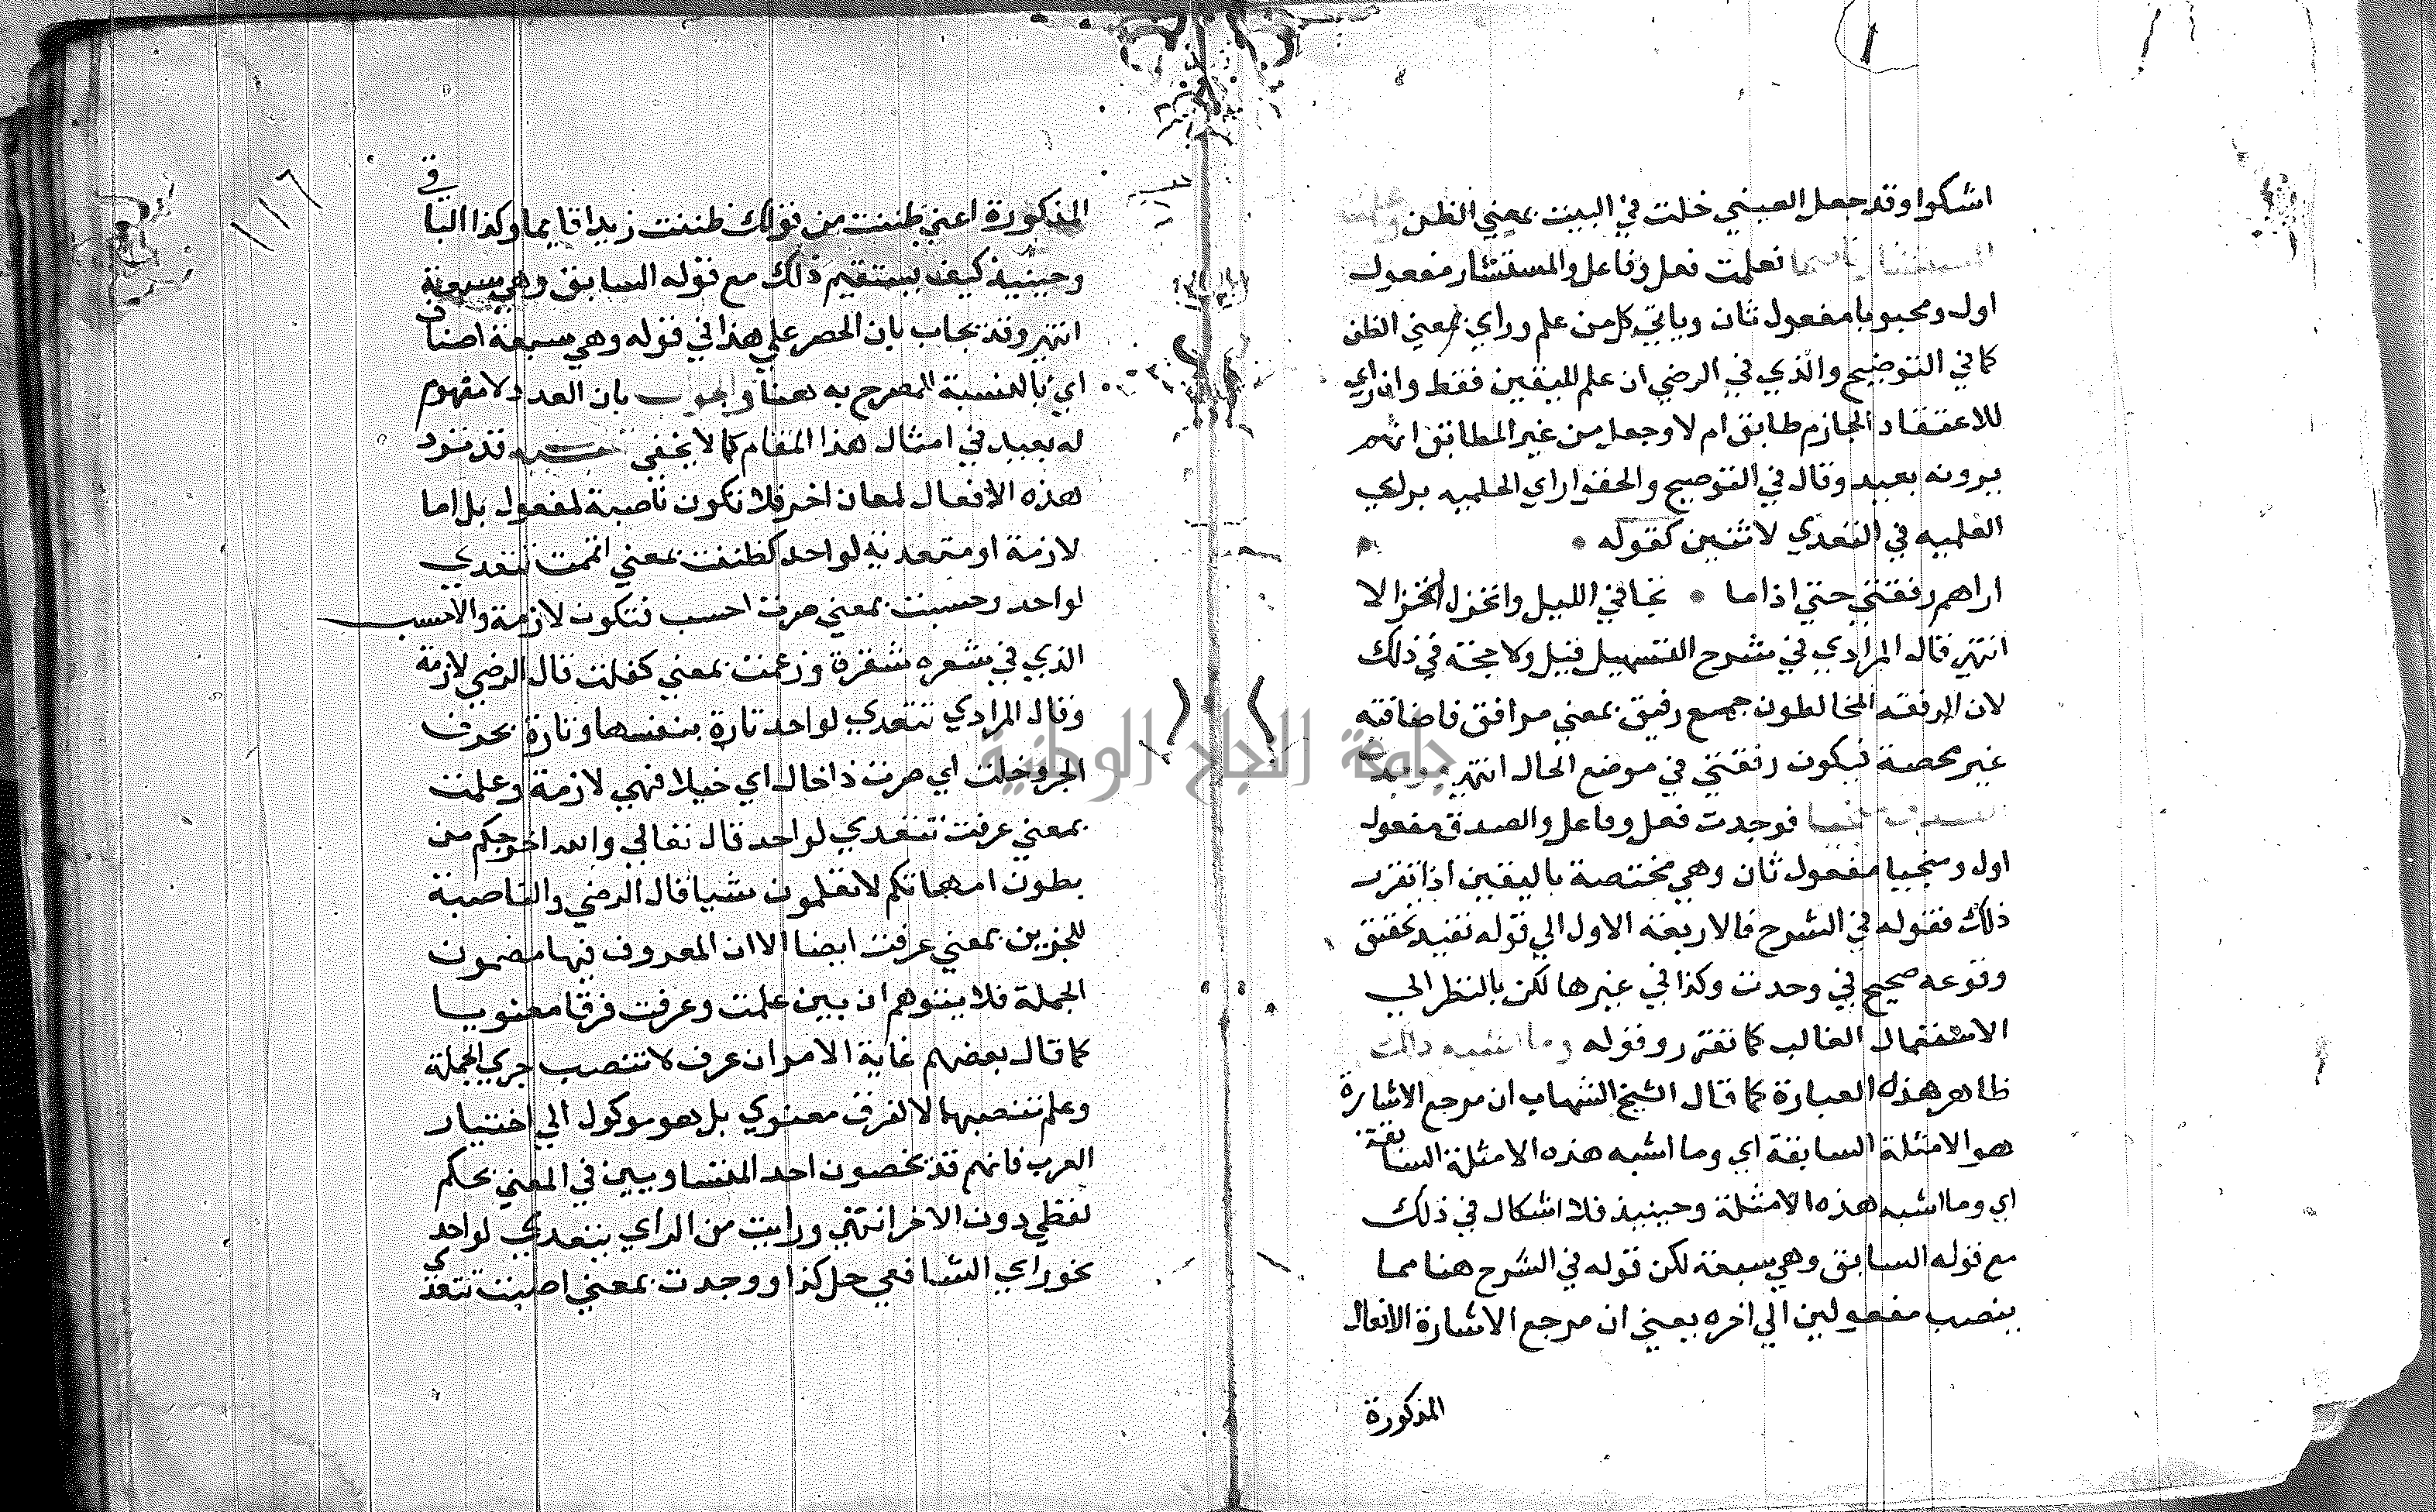 اشكوا وقد جعل العيني خلت في البيت بمعني الظن
فعلمت فعل وفاعل والمستشار مفعول
اول ومحبوبا مفعول ثان وياتي كل من علم وراي بمعني الظن
كما في التوضيح والذي في الرضي ان علم لليقين فقط وان راي
للاعتقاد الجازم طابق ام لا وجعل من غير المطابق انهم
يرونه بعيد وقال في التوضيح والحقوا راي الحلميه براي
العلميه في التعدي لاثنين كقوله
اراهم رفقتي حتي اذا ما تجافي الليل وانخزل انخزالا
انتهي قال المرادي في شرح التسهيل قيل ولا حجة في ذلك
لان الرفقه المخالطون جمع رفيق بمعني مرافق فاضافته
غير محصة فيكون رفقتي في موضع الحال انتهي
فوجدت فعل وفاعل والصدق مفعول
اول ومنجيا مفعول ثان وهي مختصة باليقين اذا تقرر
ذلك فقوله في الشرح فالاربعة الاول الي قوله تفيد تحقق
وقوعه صحيح في وجدت وكذا في غيرها لكن بالنظر الي
الاستعمال الغالب كما تقرر وقوله وما اشبه ذلك
ظاهر هذه العبارة كما قال الشيخ الشهاب ان مرجع الاشارة
هو الامثلة السابقة اي وما اشبه هذه الامثلة السابقة
اي وما اشبه هذه الامثلة وحينيذ فلا اشكال في ذلك
مع قوله السابق وهي سبعة لكن قوله في الشرح هنا مما
ينصب مفعولين الي اخره يعني ان مرجع الاشارة الافعال
المذكورة
١١٦
المذكورة اعني ظننت من قولك ظننت زيدا قايما وكذا الباقي
وحينيذ كيف يستقيم ذلك مع قوله السابق وهي سبعة
انتهي وقد يجاب بان الحصر علي هذا في قوله وهي سبعة اصناف
اي بالنسبة للمصرح به هنا والجواب بان العدد لا مفهوم
له بعيد في امثال هذا المقام كما لا يخفي تنبيه قد ترد
هذه الافعال لمعان اخر فلا تكون ناصبة لمفعول بل اما
لازمة او متعدية لواحد كظننت بمعني اتهمت تتعدي
لواحد وحسبت بمعني صرت احسب فتكون لازمة والاحسب
الذي في شعره شقرة وزعمت بمعني كفلت قال الرضي لازمة
وقال المرادي تتعدي لواحد تارة بنفسها وتارة بحرف
الجر وخلت اي صرت ذا خال اي خيلا فهي لازمة وعلمت
بمعني عرفت تتعدي لواحد قال تعالي والله اخرجكم من
بطون امهاتكم لا تعلمون شيا قال الرضي والناصبة
للجزين بمعني عرفت ايضا الا ان المعروف فيها مضمون
الجملة فلا يتوهم ان بين علمت وعرفت فرقا معنويا
كما قال بعضهم غاية الامر ان عرف لا تنصب جزي الجملة
وعلم تنصبهما لا لفرق معنوي بل هو موكول الي اختيار
العرب فانهم قد يخصون احد المتساويين في المعني بحكم
لفظي دون الاخر انتهي ورايت من الراي يتعدي لواحد
نحو راي الشافعي حل كذا ووجدت بمعني اصبت تتعدي
جامعة النجاح الوطنية